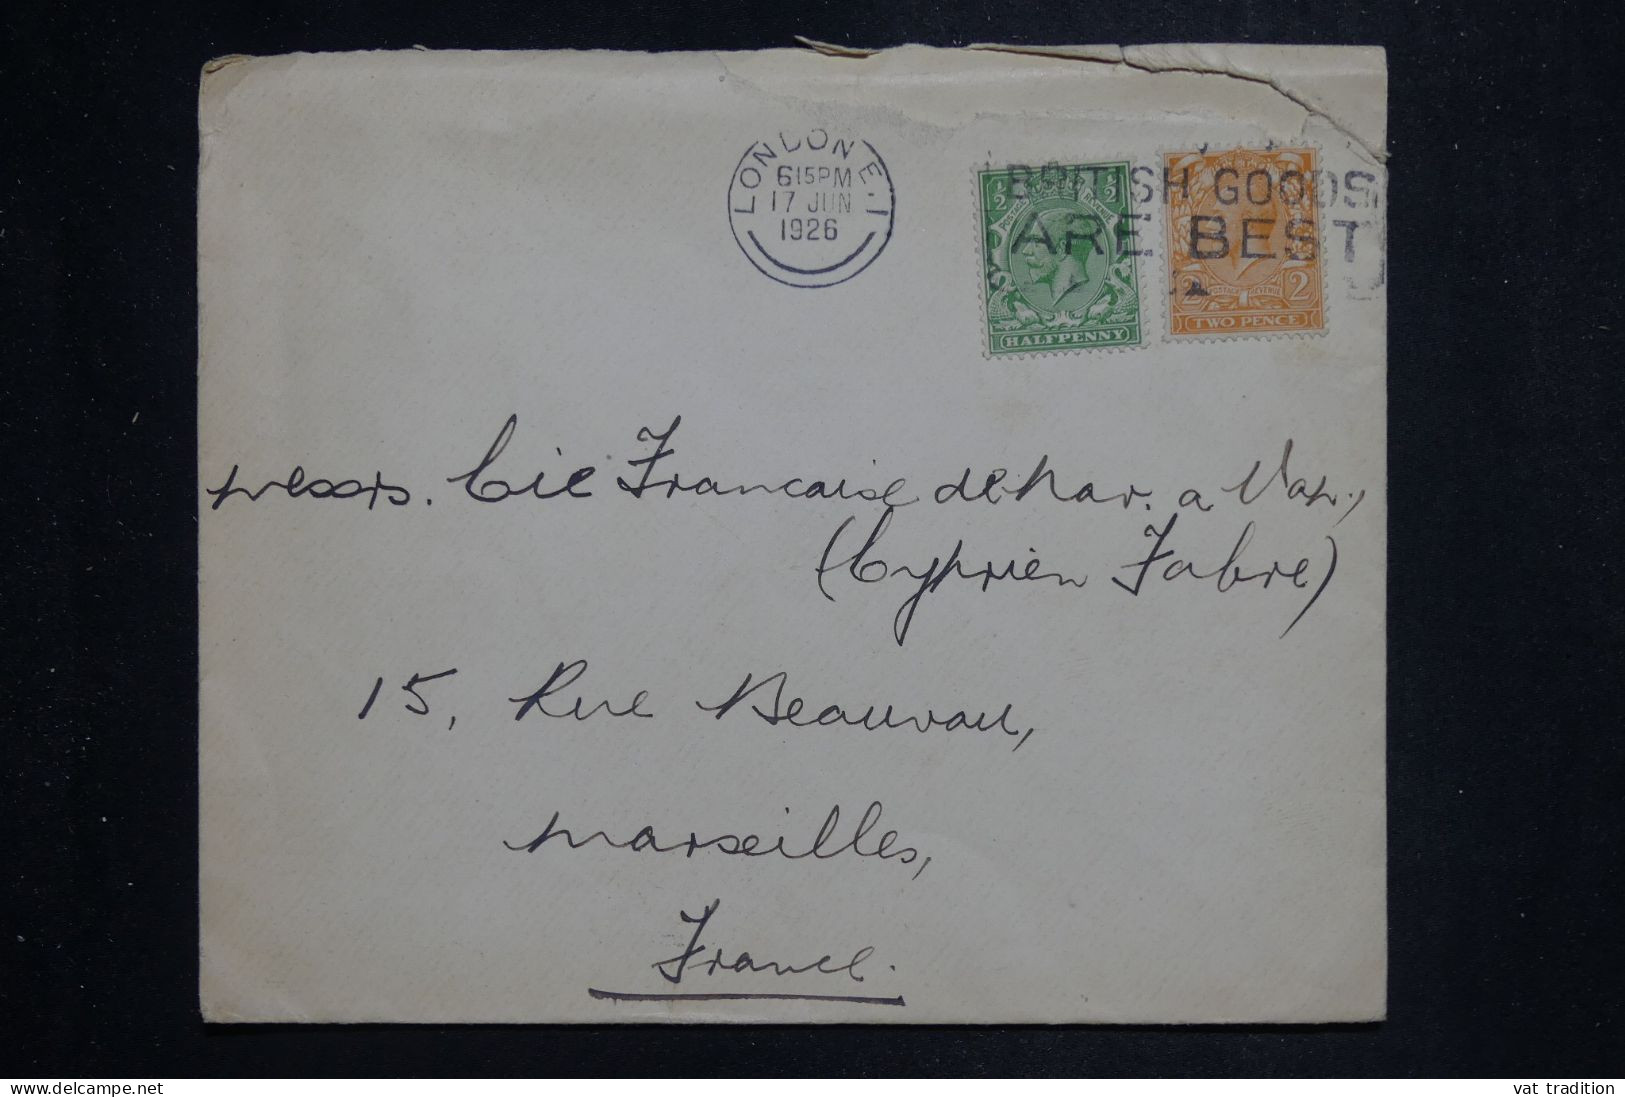 LONDON E.1
6 15 PM
17 JUN
1926
BRITISH GOODS
ARE BEST
1/2 1/2
POSTAGE REVENUE
HALFPENNY
2 2
POSTAGE REVENUE
TWO PENCE
Messrs. Cie Francaise de Nav. a Vap.,
(Cyprien Fabre)
15, Rue Beauvau,
Marseilles,
France.
www.delcampe.net
vat tradition